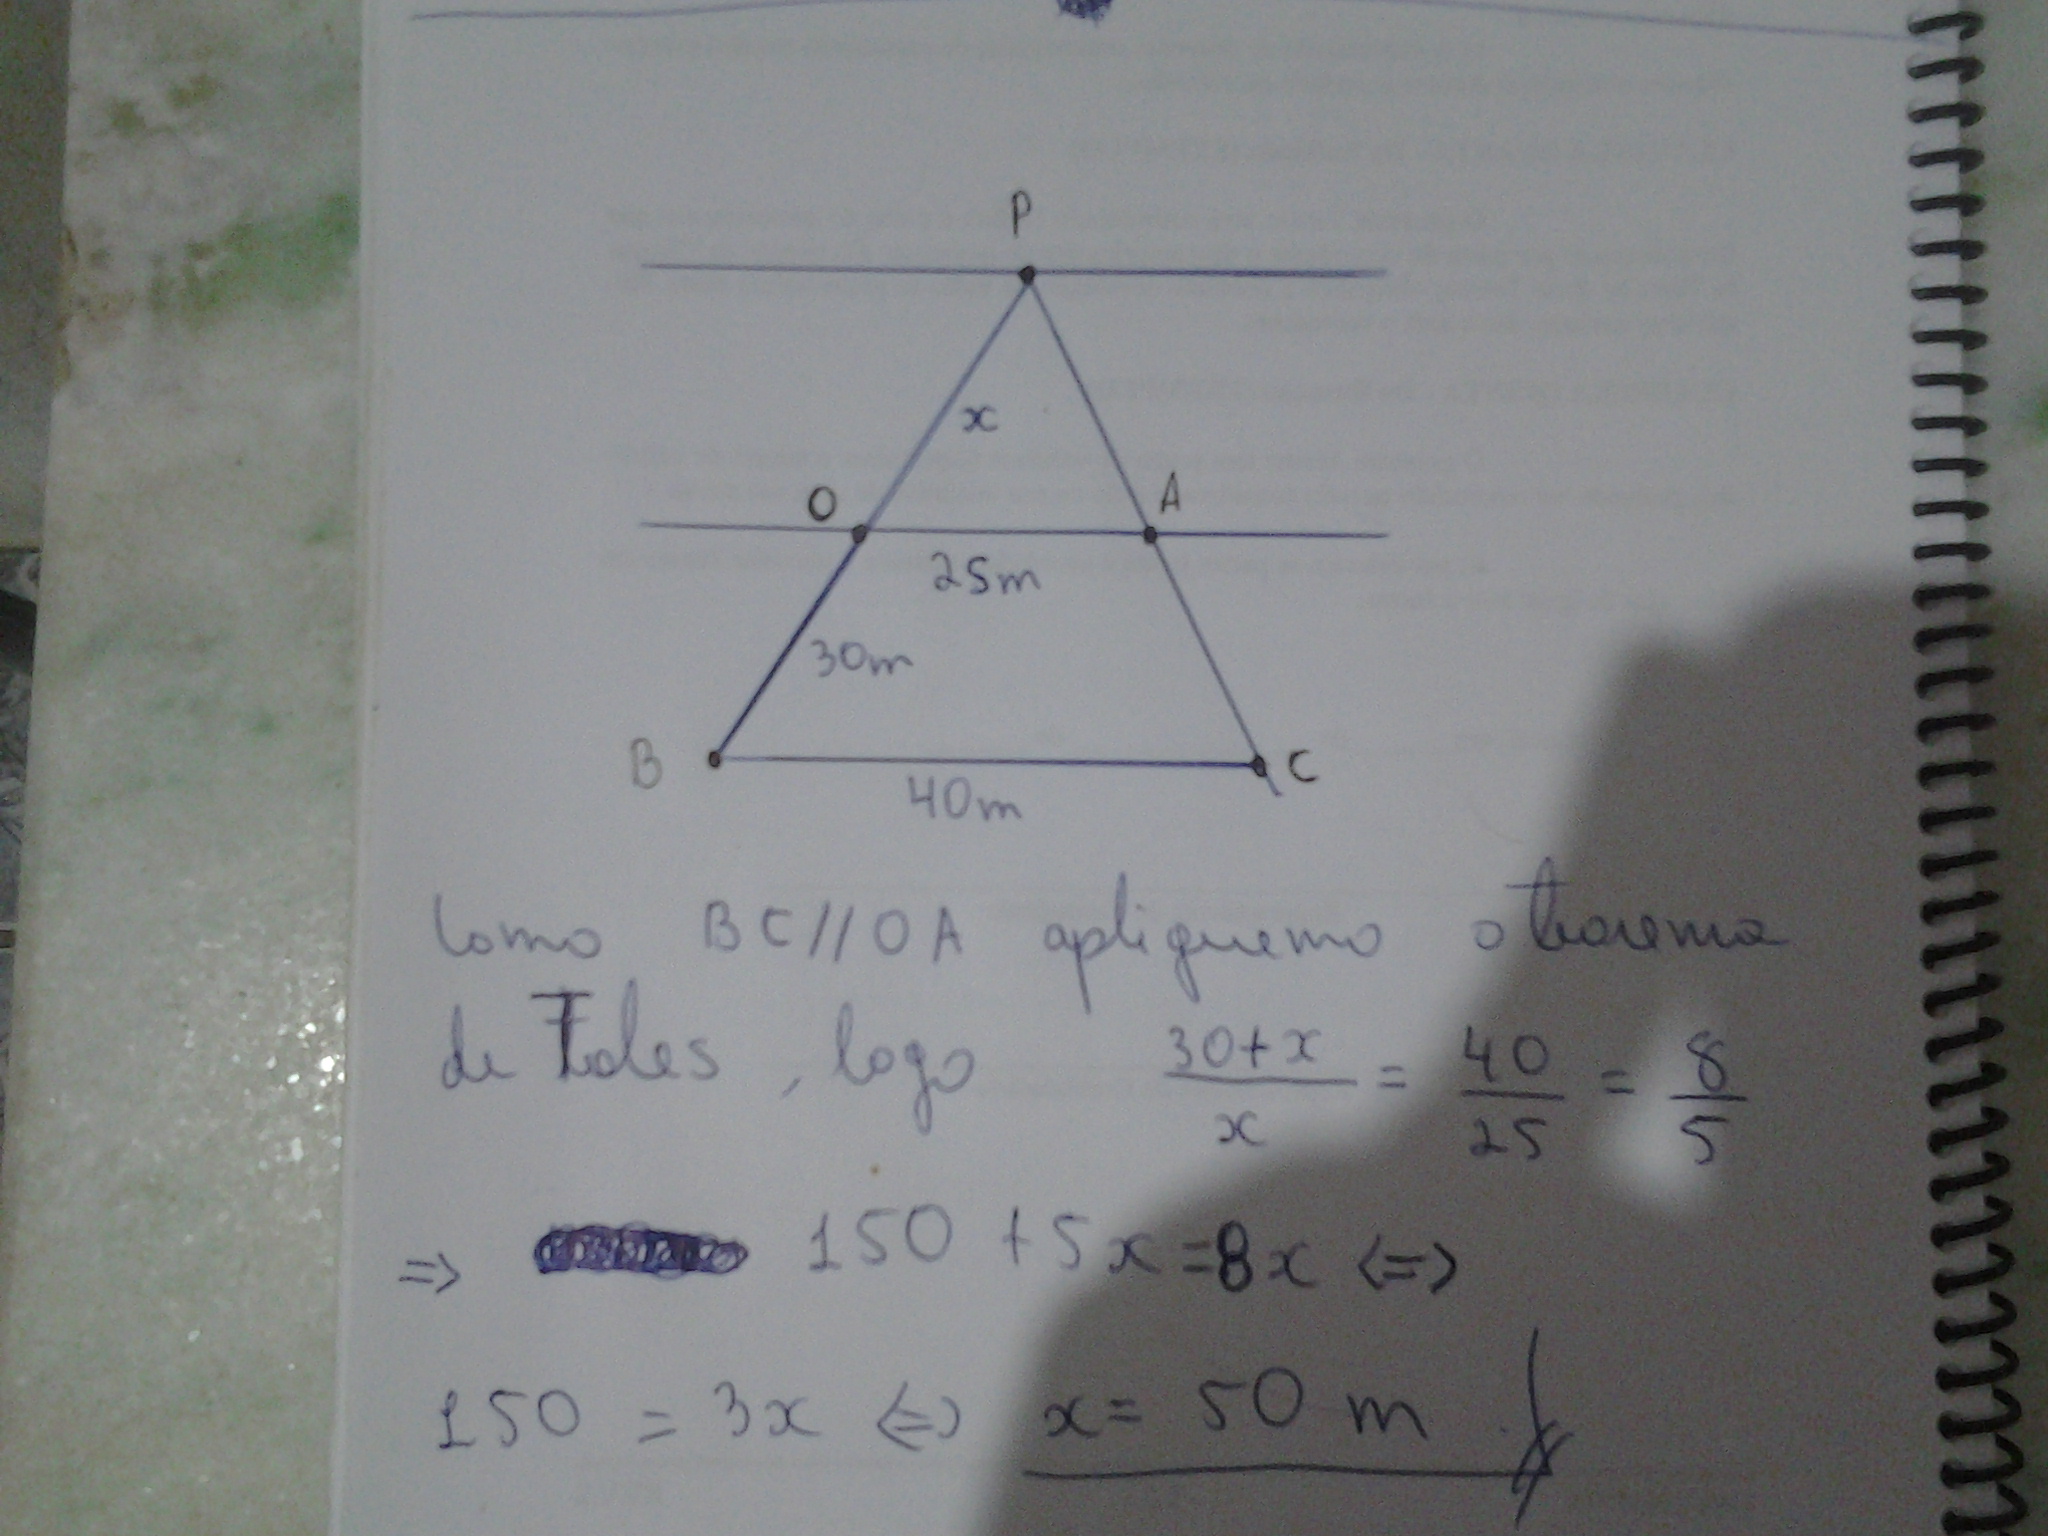 P
x
O A
25m
30m
B C
40m
Como BC//OA apliquemo o teorema
de Tales, logo 30+x/x = 40/25 = 8/5
=> 150 + 5x = 8x <=>
150 = 3x <=> x = 50 m